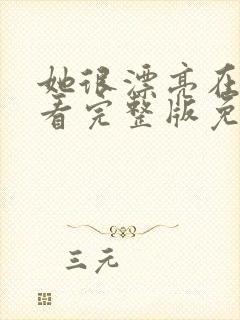 她很漂亮在
看完整版免
三元